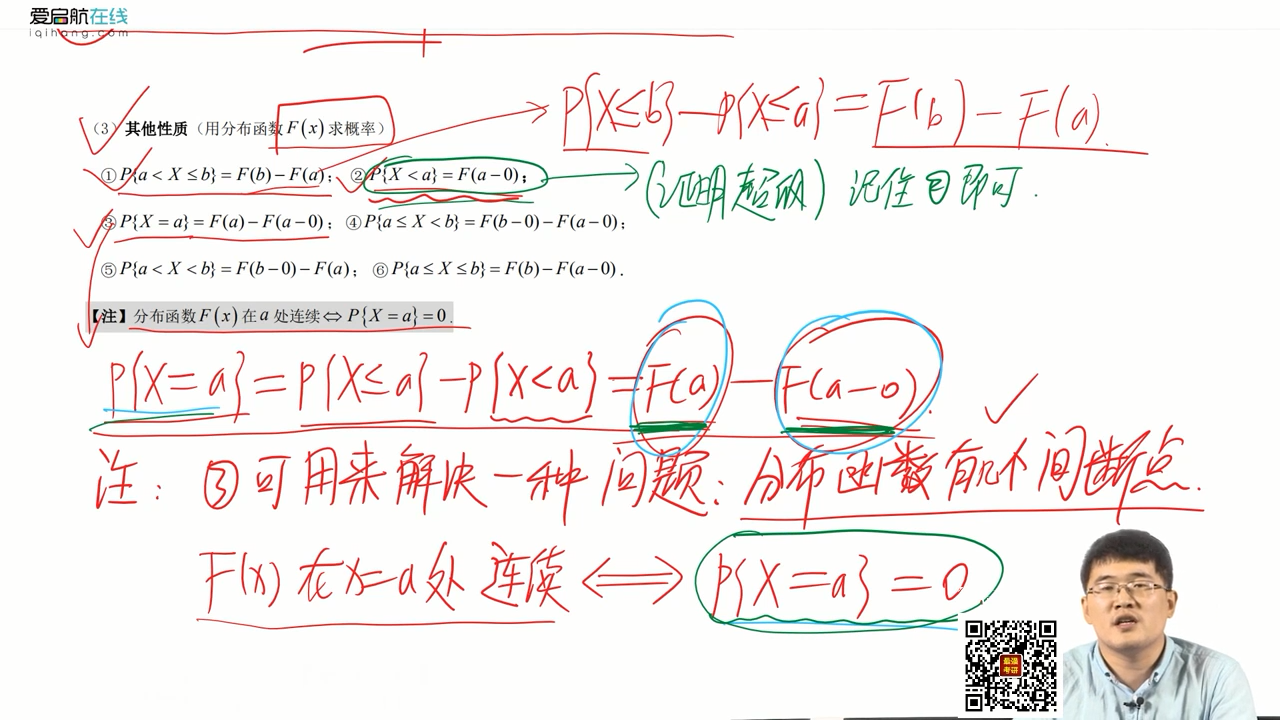 爱启航在线
iqihang.com
P{X≤b}-P{X≤a}=F(b)-F(a).
(3) 其他性质（用分布函数F(x)求概率）
①P{a<X≤b}=F(b)-F(a)； ②P{X<a}=F(a-0)；
(证明超纲) 记住②即可.
③P{X=a}=F(a)-F(a-0)；④P{a≤X<b}=F(b-0)-F(a-0)；
⑤P{a<X<b}=F(b-0)-F(a)； ⑥P{a≤X≤b}=F(b)-F(a-0).
【注】分布函数F(x)在a处连续⇔P{X=a}=0.
P{X=a}=P{X≤a}-P{X<a}=F(a)-F(a-0).
注: ③可用来解决一种问题: 分布函数有几个间断点.
F(x)在x=a处连续⟺P{X=a}=0
最强考研